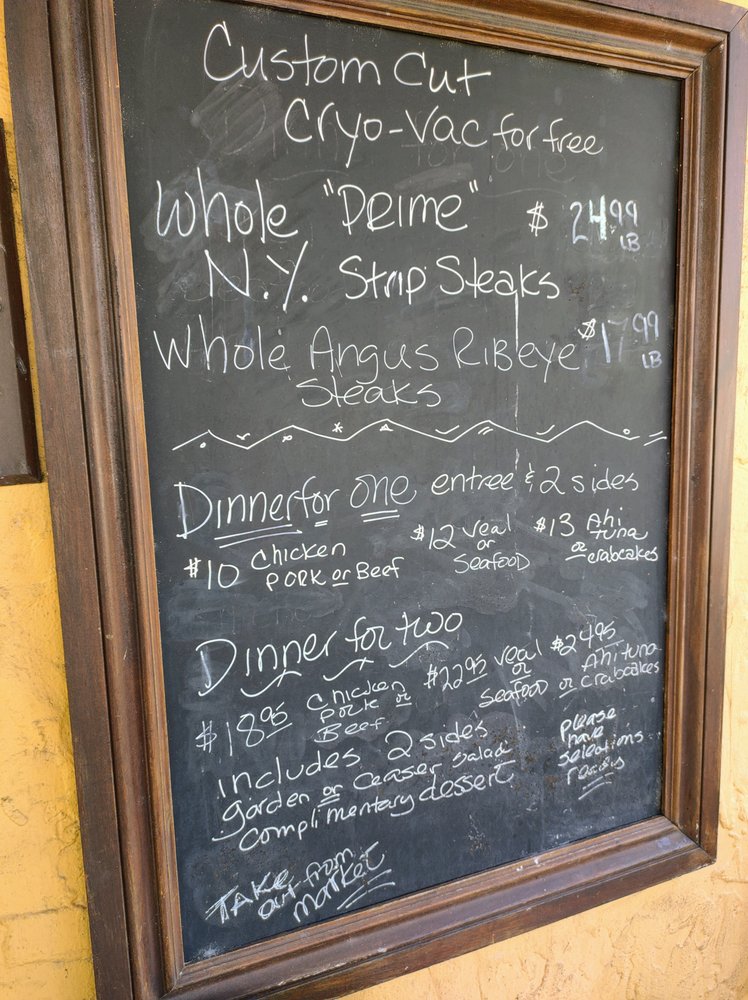 Custom Cut
Cryo-Vac for free
Whole "Prime" $ 24.99 LB
N.Y. Strip Steaks
Whole Angus Ribeye $17.99 LB
Steaks
Dinner for one entree & 2 sides
$10 Chicken pork or Beef
$12 veal or Seafood
$13 Ahi tuna or crabcakes
Dinner for two
$18.95 Chicken pork or Beef
$22.95 veal or Seafood
$24.95 Ahi tuna or crabcakes
includes 2 sides
garden or ceaser salad
complimentary dessert
please
have
selections
ready
TAKE
out from
market